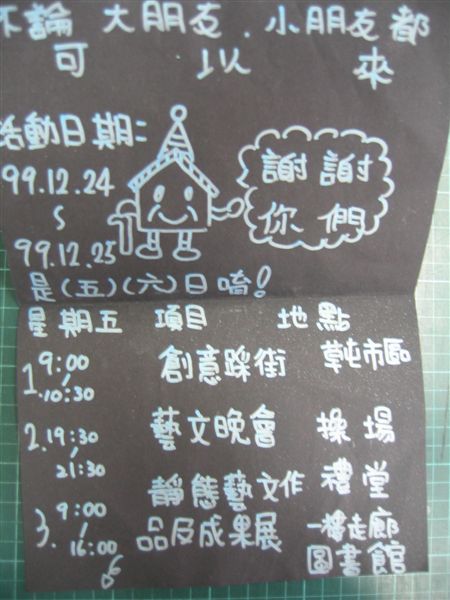 不論 大朋友.小朋友都
可 以 來
活動日期:
99.12.24
~
99.12.25
謝謝
你們
是(五)(六)日唷!
星期五 項目 地點
1. 9:00 / 10:30 創意踩街 草屯市區
2. 19:30 / 21:30 藝文晚會 操場
3. 9:00 / 16:00 靜態藝文作 禮堂
品及成果展 一樓走廊
圖書館